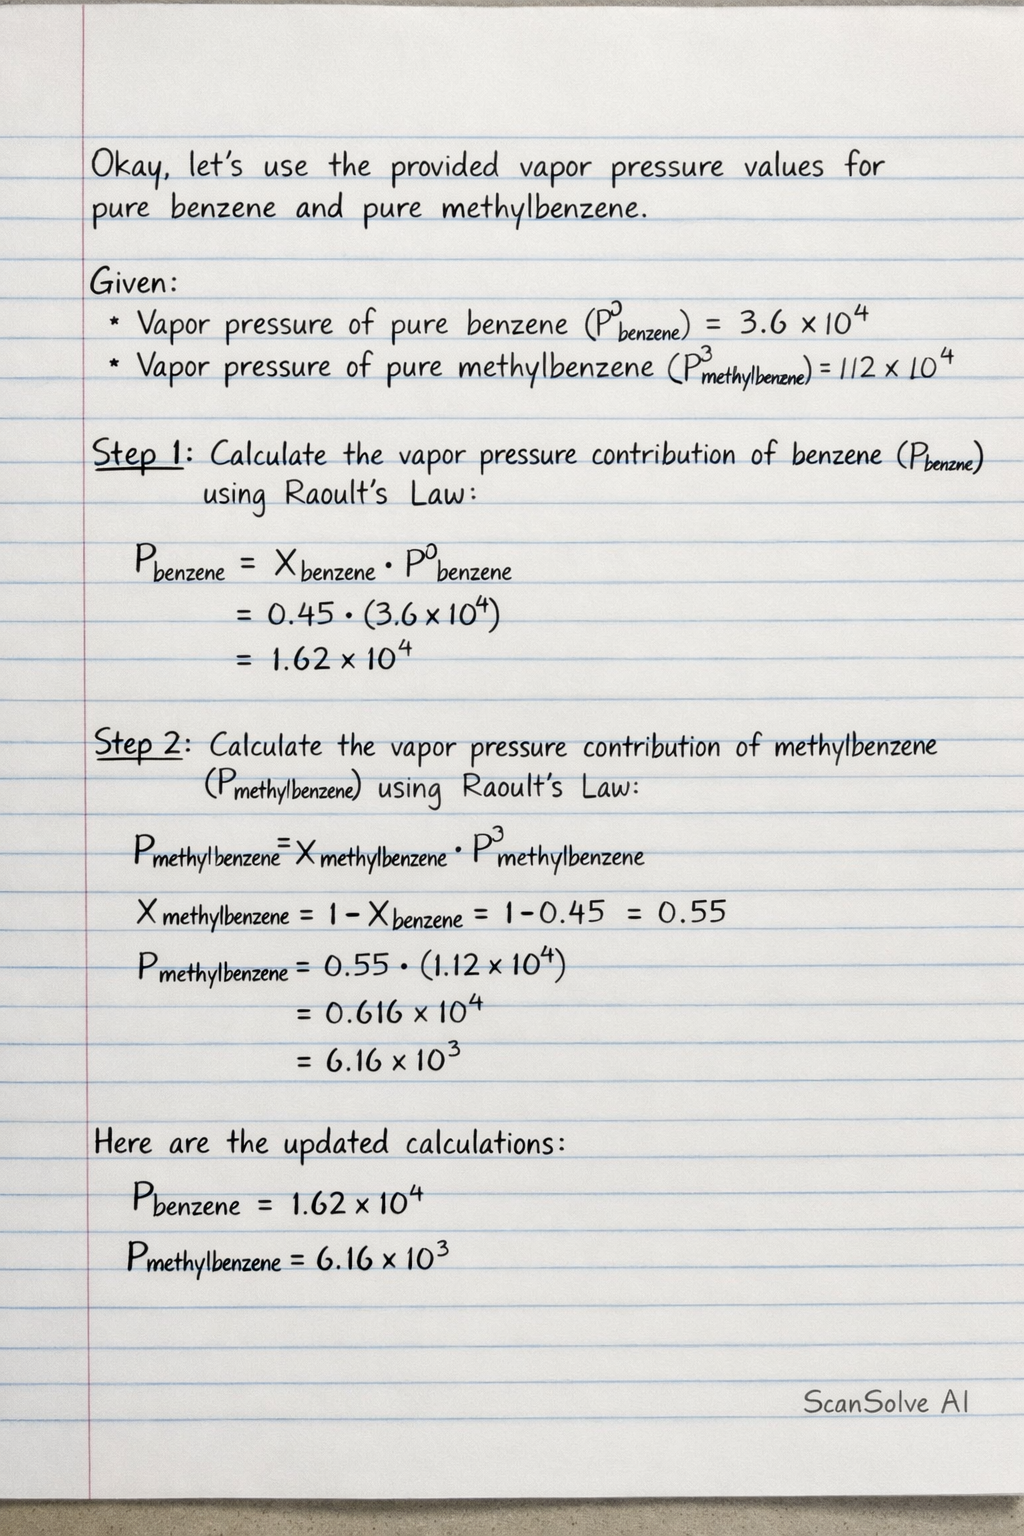 Okay, let's use the provided vapor pressure values for
pure benzene and pure methylbenzene.
Given:
* Vapor pressure of pure benzene (P⁰benzene) = 3.6 × 10⁴
* Vapor pressure of pure methylbenzene (P³methylbenzene) = 112 × 10⁴
Step 1: Calculate the vapor pressure contribution of benzene (Pbenzne)
using Raoult's Law:
Pbenzene = Xbenzene · P⁰benzene
= 0.45 · (3.6 × 10⁴)
= 1.62 × 10⁴
Step 2: Calculate the vapor pressure contribution of methylbenzene
(Pmethylbenzene) using Raoult's Law:
Pmethylbenzene = Xmethylbenzene · P³methylbenzene
Xmethylbenzene = 1 - Xbenzene = 1 - 0.45 = 0.55
Pmethylbenzene = 0.55 · (1.12 × 10⁴)
= 0.616 × 10⁴
= 6.16 × 10³
Here are the updated calculations:
Pbenzene = 1.62 × 10⁴
Pmethylbenzene = 6.16 × 10³
ScanSolve AI